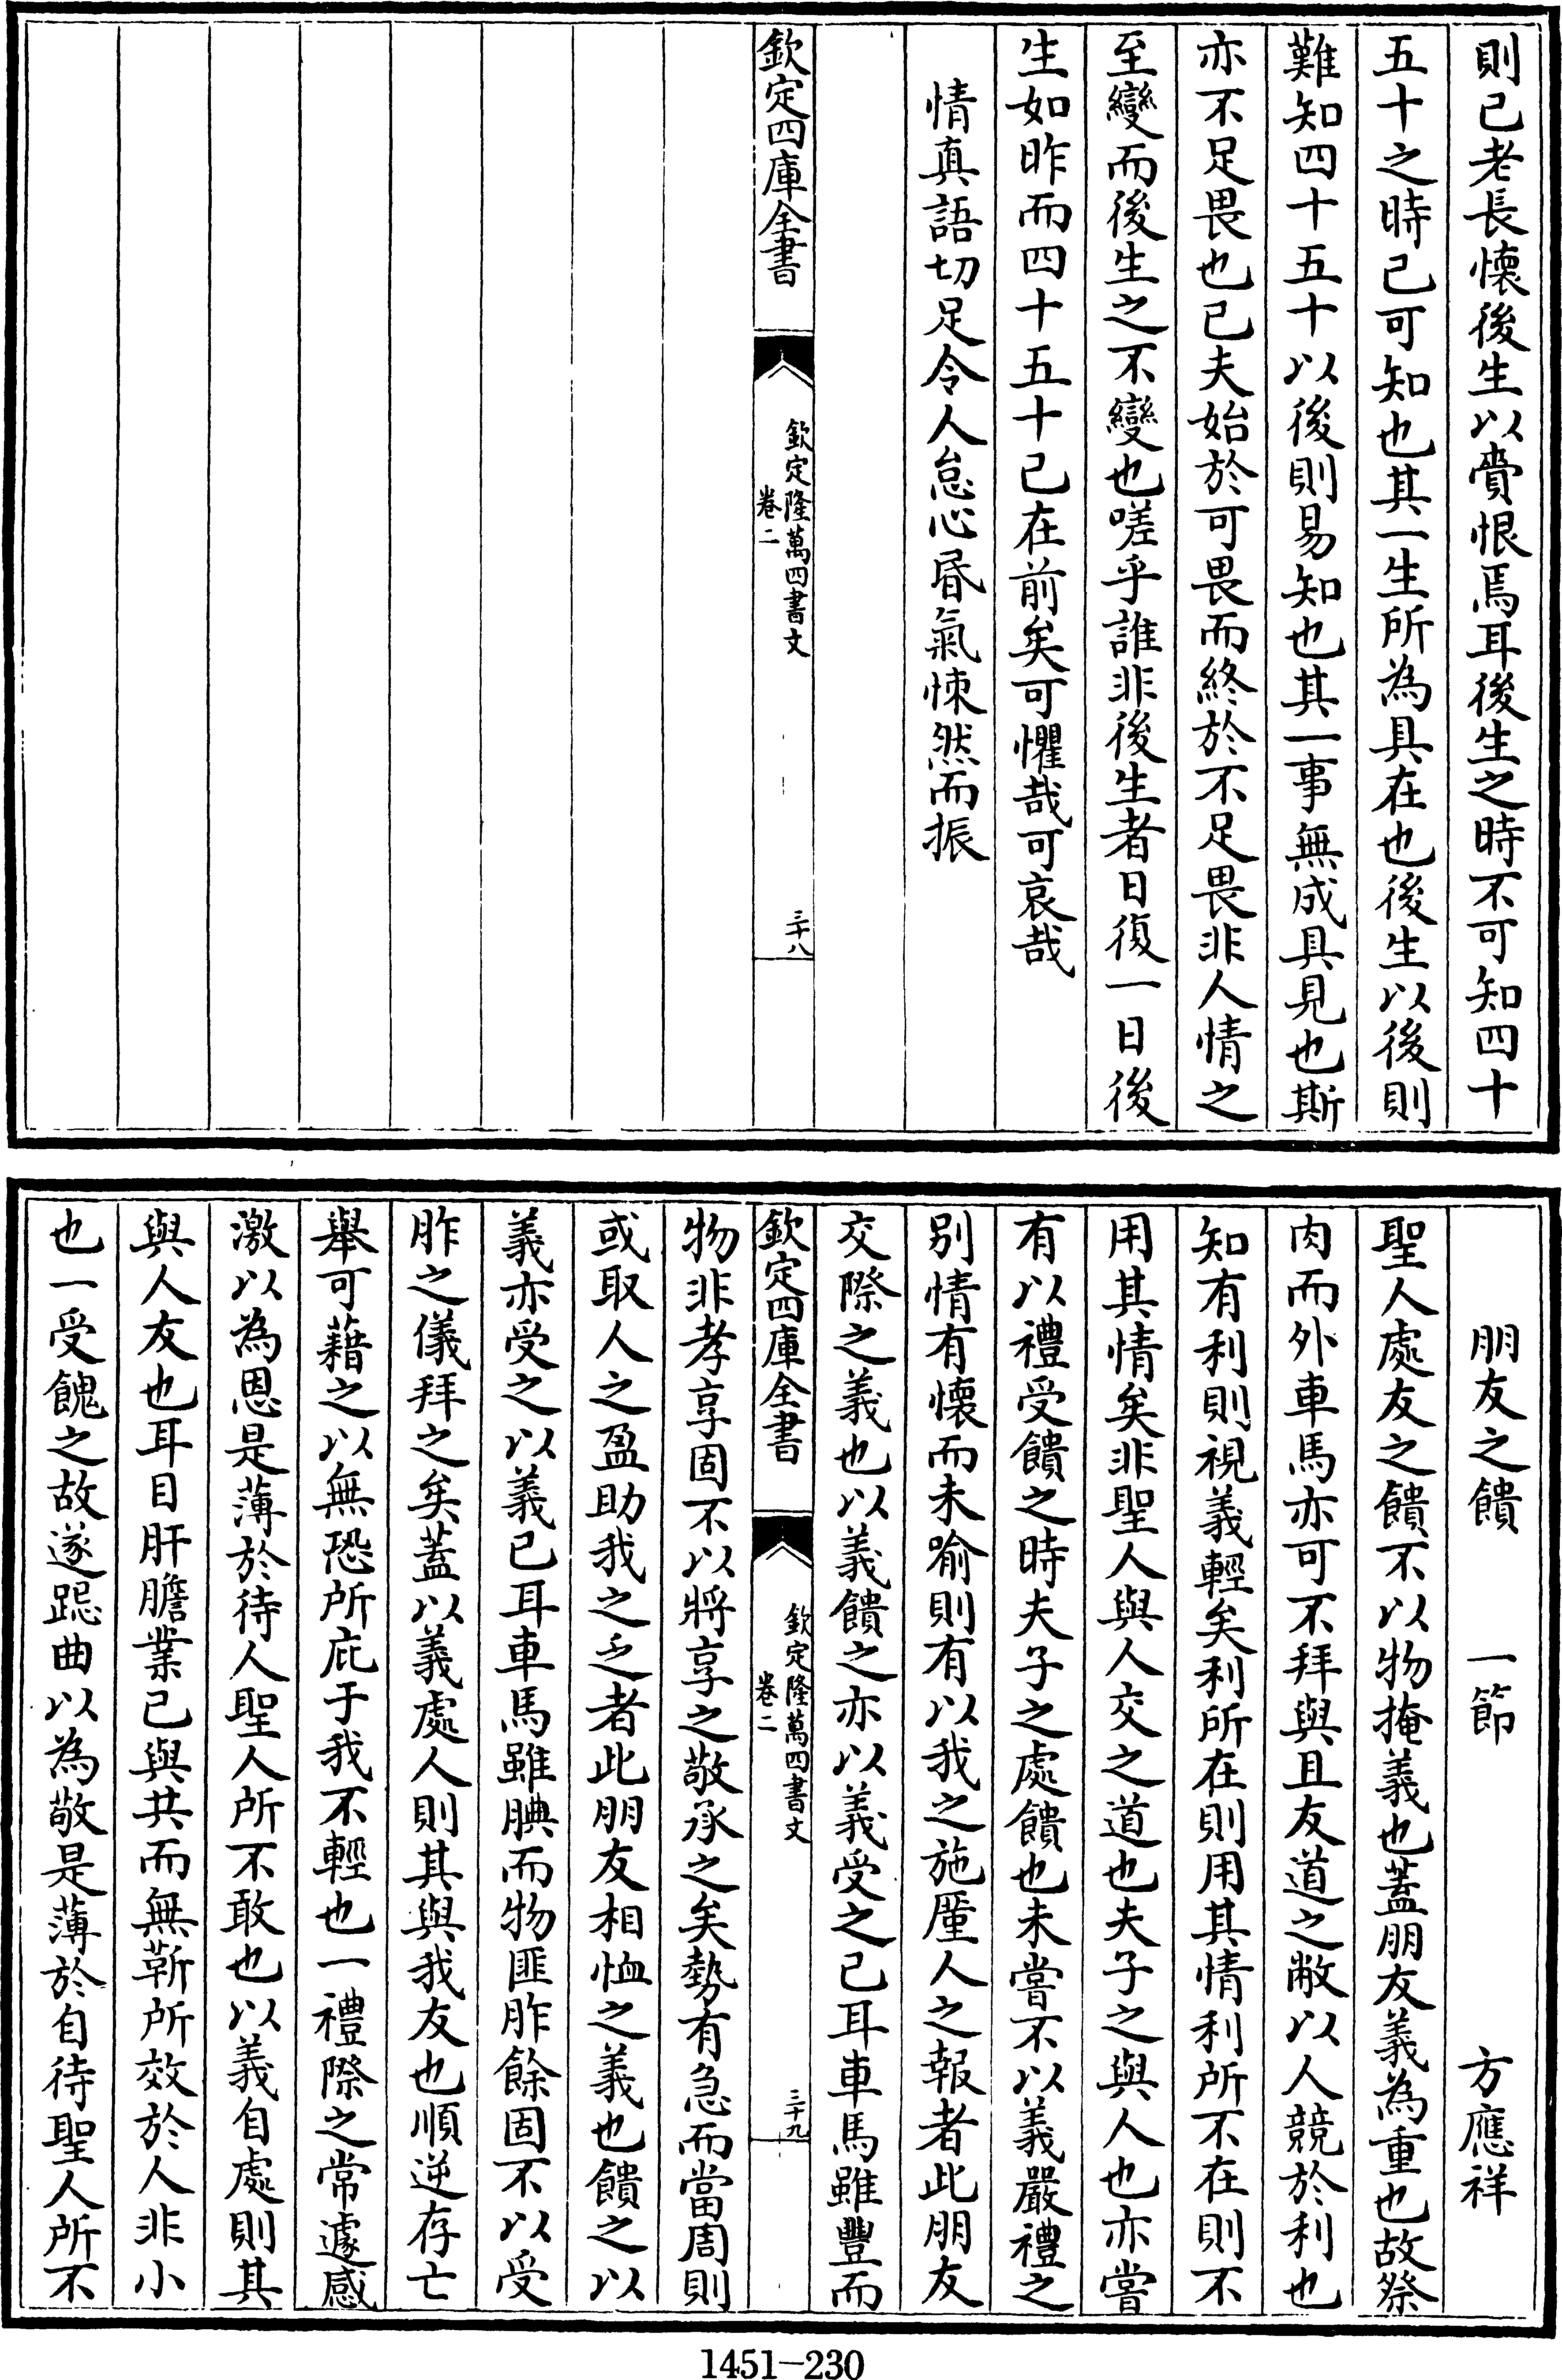 則已老長懷後生以賫恨焉耳後生之時不可知四十
五十之時已可知也其一生所為具在也後生以後則
難知四十五十以後則易知也其一事無成具見也斯
亦不足畏也已夫始於可畏而終於不足畏非人情之
至變而後生之不變也嗟乎誰非後生者日復一日後
生如昨而四十五十已在前矣可懼哉可哀哉
情真語切足令人怠心昬氣悚然而振
欽定四庫全書
欽定隆萬四書文
卷二
三十八
朋友之饋 一節 方應祥
聖人處友之饋不以物掩義也蓋朋友義為重也故祭
肉而外車馬亦可不拜與且友道之敝以人競於利也
知有利則視義輕矣利所在則用其情利所不在則不
用其情矣非聖人與人交之道也夫子之與人也亦嘗
有以禮受饋之時夫子之處饋也未嘗不以義嚴禮之
别情有懷而未喻則有以我之施厪人之報者此朋友
交際之義也以義饋之亦以義受之已耳車馬雖豐而
欽定四庫全書
欽定隆萬四書文
卷二
三十九
物非孝享固不以將享之敬承之矣勢有急而當周則
或取人之盈助我之乏者此朋友相恤之義也饋之以
義亦受之以義已耳車馬雖腆而物匪胙餘固不以受
胙之儀拜之矣蓋以義處人則其與我友也順逆存亡
舉可藉之以無恐所庇于我不輕也一禮際之常遽感
激以為恩是薄於待人聖人所不敢也以義自處則其
與人友也耳目肝膽業已與共而無靳所效於人非小
也一受餽之故遂跽曲以為敬是薄於自待聖人所不
1451-230